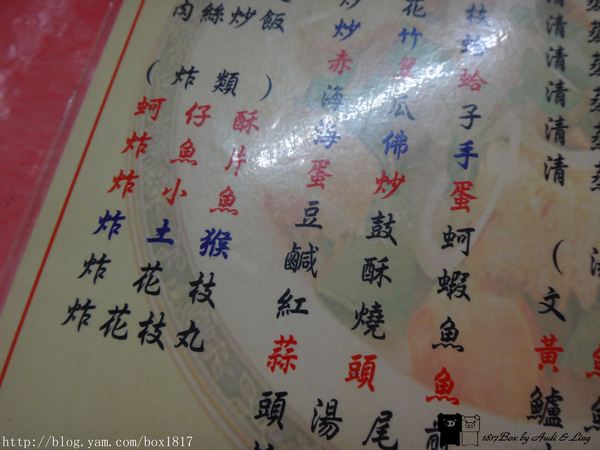 肉絲炒飯
(炸類)
蚵仔酥
炸魚片
炸小魚
炸土猴
炸花枝
炸花枝丸
炒花枝
炒竹蛤
赤翠蛤
海瓜子
海佛手
蛋炒蛋
豆鼓蚵
鹹酥蝦
紅燒魚
蒜頭魚
頭 尾
湯
清蒸
清蒸
清蒸
清蒸
清蒸
(
文
黃魚
鱸魚
http://blog.yam.com/box1817
1817Box by Audi & Ling